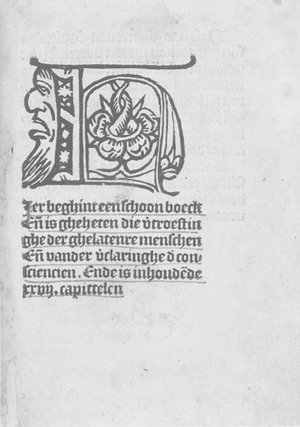 Hier beghint een schoon boeck
Eñ is gheheten die v̄troestin
ghe der ghelatenre menschen
Eñ vander v̄claringhe d̄ con
sciencien. Ende is inhoudēde
xxvij. capittelen